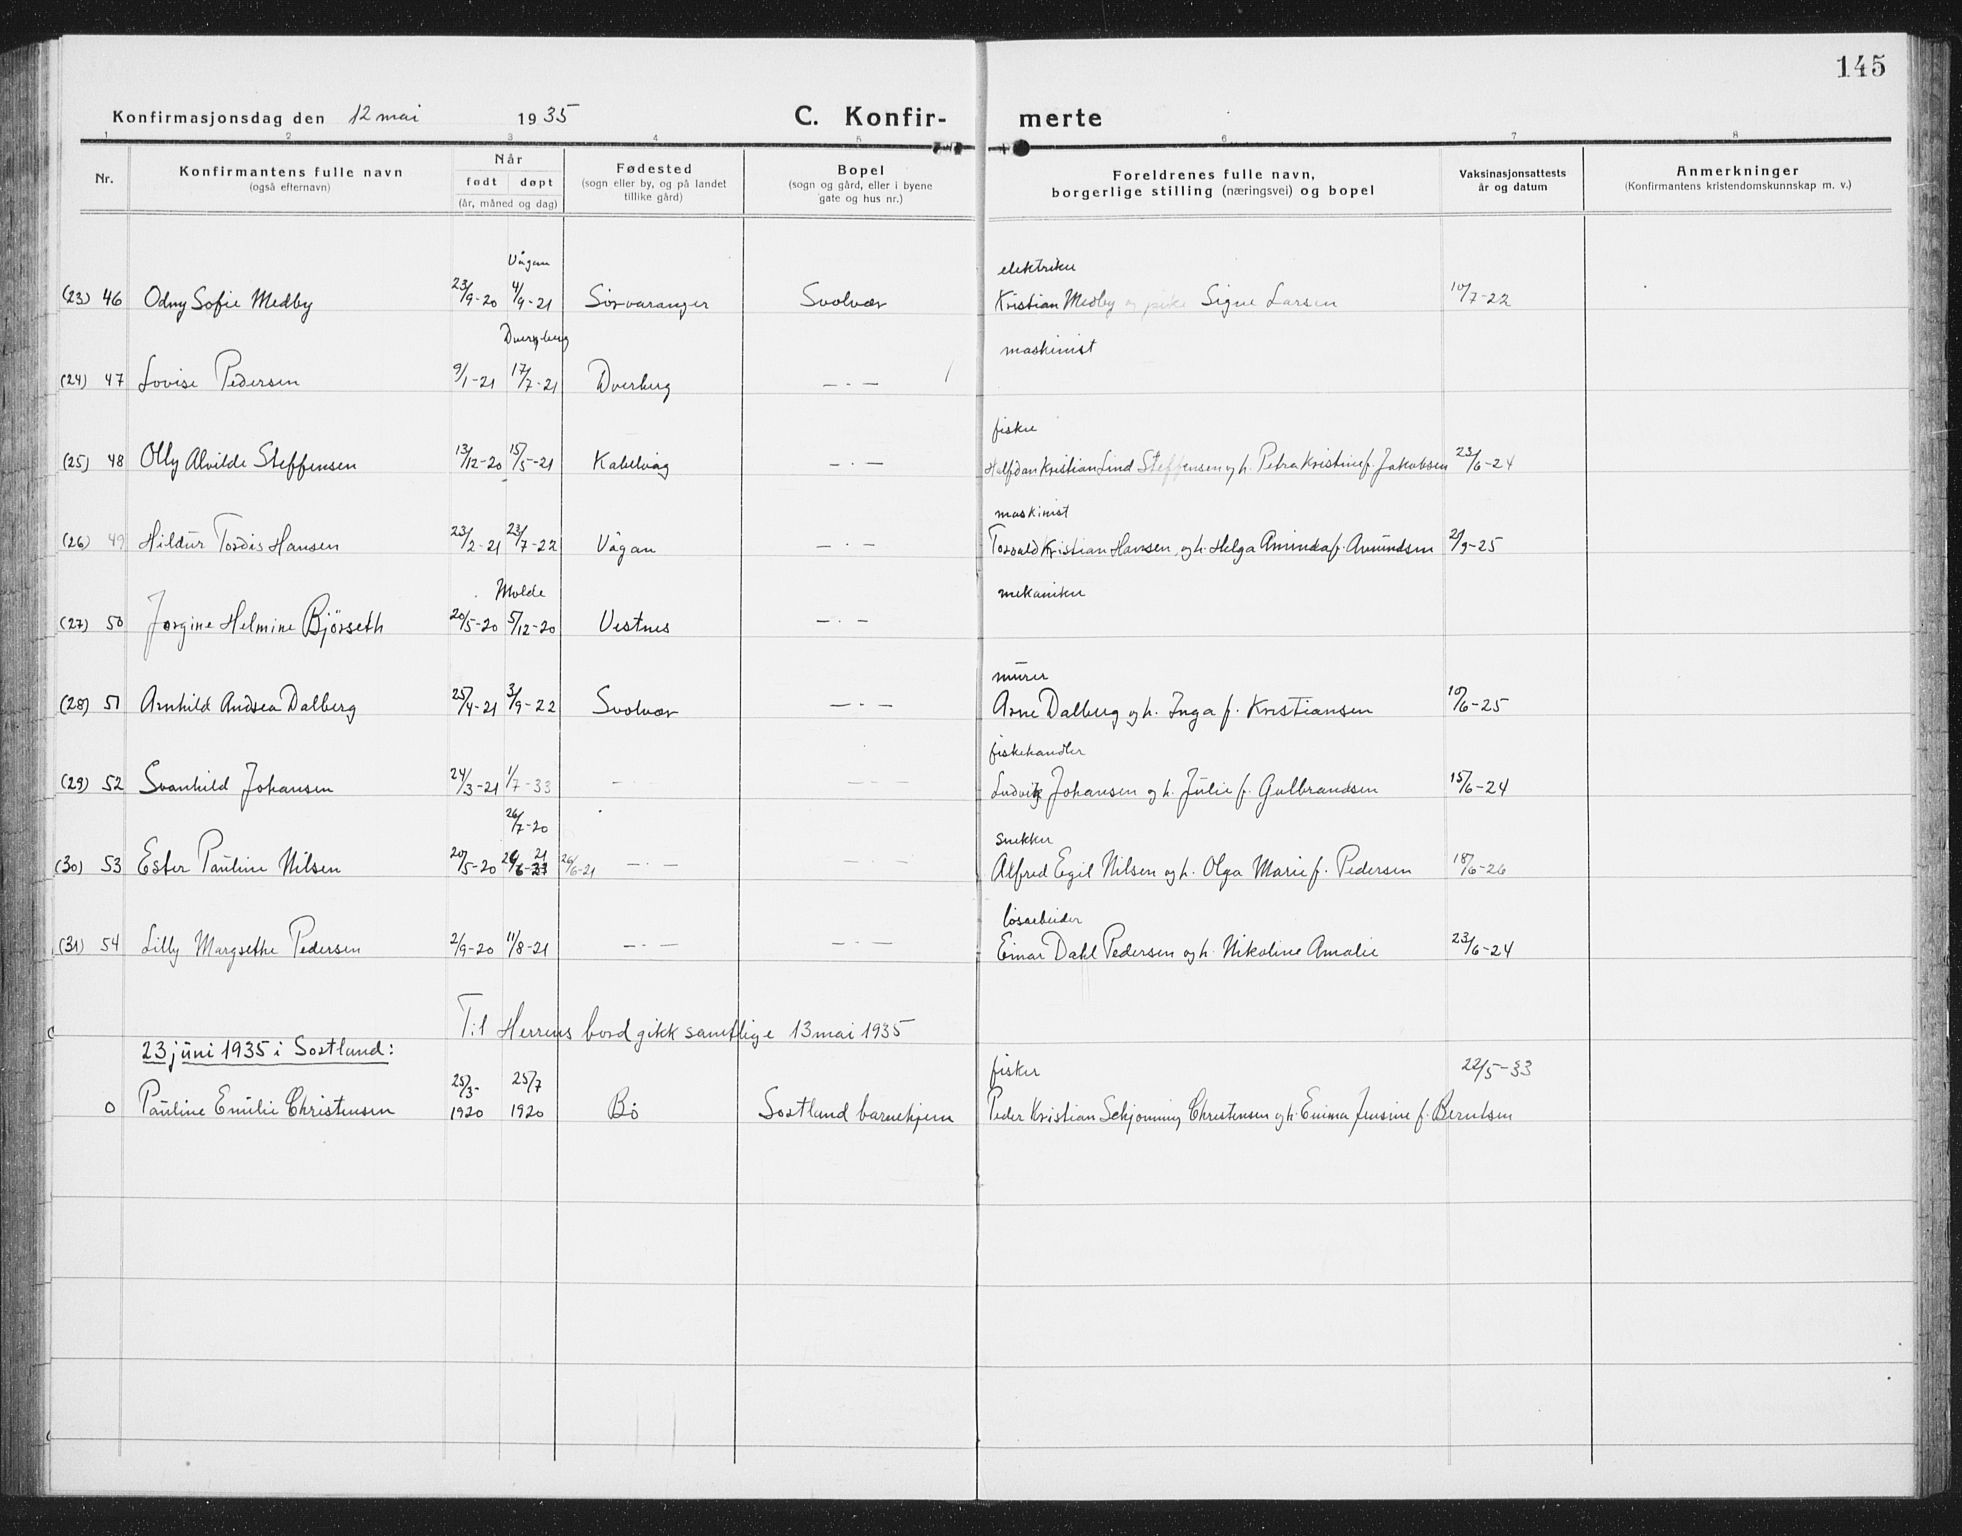 145
Konfirmasjonsdag den 12 mai 1935 C. Konfir- merte
1 2 3 4 5 6 7 8
Nr. Konfirmantens fulle navn (også efternavn) Når født døpt (år, måned og dag) Fødested (sogn eller by, og på landet tillike gård) Bopel (sogn og gård, eller i byene gate og hus nr.) Foreldrenes fulle navn, borgerlige stilling (næringsvei) og bopel Vaksinasjonsattests år og datum Anmerkninger (Konfirmantens kristendomskunnskap m. v.)
Vågan elektriker
(23) 46 Odny Sofie Medby 23/9-20 4/9-21 Sørvaranger Svolvær Kristian Medby og pike Signe Larsen 10/7-22
Dverberg maskinist
(24) 47 Lovise Pedersen 9/1-21 17/7-21 Dverberg — . —
fisker
(25) 48 Olly Alvilde Steffensen 13/12-20 15/5-21 Kabelvåg — . — Halfdan Kristian Lind Steffensen og h. Petra Kristine f. Jakobsen 23/6-24
maskinist
(26) 49 Hildur Tordis Hansen 23/2-21 23/7-22 Vågan — . — Torvald Kristian Hansen, og h. Helga Aminda f. Amundsen 2/9-25
Molde mekaniker
(27) 50 Jørgine Helmine Bjørseth 20/5-20 5/12-20 Vestnes — . —
murer
(28) 51 Arnhild Andrea Dalberg 25/4-21 3/9-22 Svolvær — . — Arne Dalberg og h. Inga f. Kristiansen 10/6-25
fiskehandler
(29) 52 Svanhild Johansen 24/3-21 1/7-33 — . — — . — Ludvik Johansen og h. Julie f. Gulbrandsen 15/6-24
26/7-20 snekker
(30) 53 Ester Pauline Nilsen 20/5-20 26/6-21 26/6-21 — . — — . — Alfred Egil Nilsen og h. Olga Marie f. Pedersen 18/6-26
løsarbeider
(31) 54 Lilly Margrethe Pedersen 2/9-20 11/8-21 — . — — . — Einar Dahl Pedersen og h. Nikoline Amalie 23/6-24
Til Herrens bord gikk samtlige 13 mai 1935
23 juni 1935 i Sortland:
25/3- 25/7 fisker 22/5-33
0 Pauline Emilie Christensen 1920 1920 Bø Sortland barnehjem Peder Kristian Schjønning Christensen og h. Emma Jensine f. Berntsen